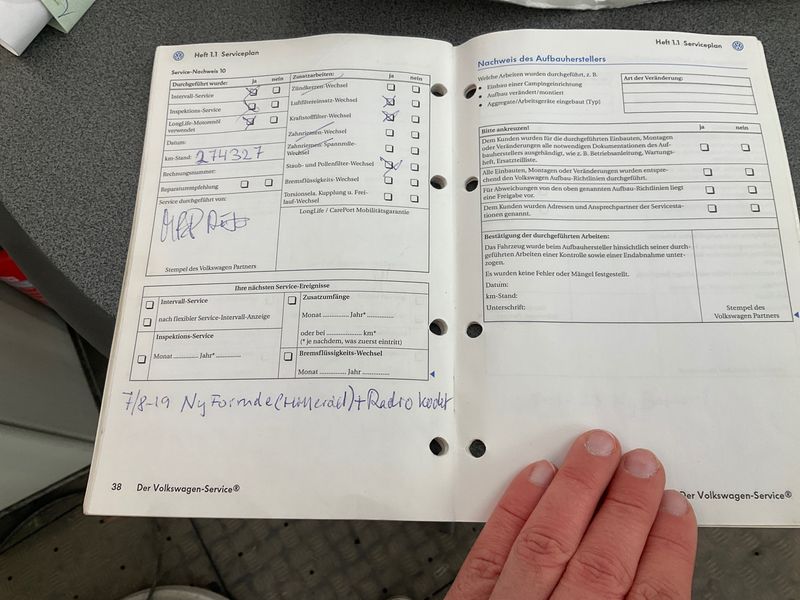 Heft 1.1 Serviceplan
Service-Nachweis 10
Durchgeführt wurde: ja nein
Intervall-Service
Inspektions-Service
LongLife-Motorenöl
verwendet
Datum:
km-Stand: 274327
Rechnungsnummer:
Reparaturempfehlung
Service durchgeführt von:
Stempel des Volkswagen Partners
Zusatzarbeiten: ja nein
Zündkerzen-Wechsel
Luftfiltereinsatz-Wechsel
Kraftstofffilter-Wechsel
Zahnriemen-Wechsel
Zahnriemen, Spannrolle-
Wechsel
Staub- und Pollenfilter-Wechsel
Bremsflüssigkeits-Wechsel
Torsionsela. Kupplung u. Frei-
lauf-Wechsel
LongLife / CarePort Mobilitätsgarantie
Ihre nächsten Service-Ereignisse
Intervall-Service
nach flexibler Service-Intervall-Anzeige
Inspektions-Service
Monat Jahr*
Zusatzumfänge
Monat Jahr*
oder bei km*
(* je nachdem, was zuerst eintritt)
Bremsflüssigkeits-Wechsel
Monat Jahr
7/8-19 Ny Forrude + Radio kodet
38 Der Volkswagen-Service®
Heft 1.1 Serviceplan
Nachweis des Aufbauherstellers
Welche Arbeiten wurden durchgeführt, z. B.
Einbau einer Campingeinrichtung
Aufbau verändert/montiert
Aggregate/Arbeitsgeräte eingebaut (Typ)
Art der Veränderung:
Bitte ankreuzen! ja nein
Dem Kunden wurden für die durchgeführten Einbauten, Montagen
oder Veränderungen alle notwendigen Dokumentationen des Auf-
bauherstellers ausgehändigt, wie z. B. Betriebsanleitung, Wartungs-
heft, Ersatzteilliste.
Alle Einbauten, Montagen oder Veränderungen wurden entspre-
chend den Volkswagen Aufbau-Richtlinien durchgeführt.
Für Abweichungen von den oben genannten Aufbau-Richtlinien liegt
eine Freigabe vor.
Dem Kunden wurden Adressen und Ansprechpartner der Servicesta-
tionen genannt.
Bestätigung der durchgeführten Arbeiten:
Das Fahrzeug wurde beim Aufbauhersteller hinsichtlich seiner durch-
geführten Arbeiten einer Kontrolle sowie einer Endabnahme unter-
zogen.
Es wurden keine Fehler oder Mängel festgestellt.
Datum:
km-Stand:
Unterschrift:
Stempel des
Volkswagen Partners
Der Volkswagen-Service®